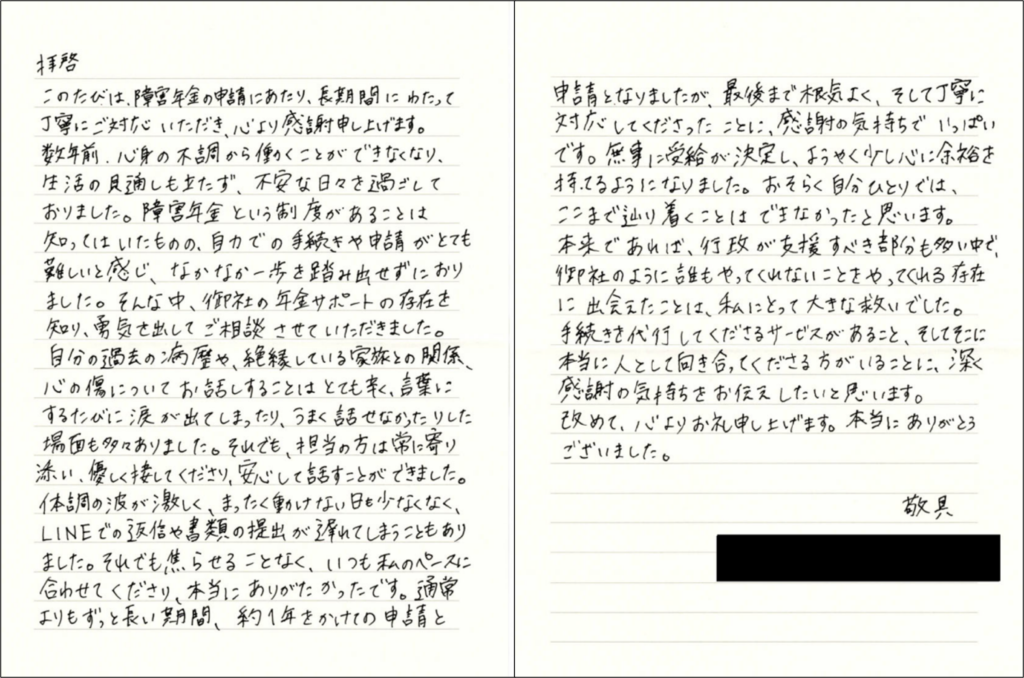 拝啓
このたびは、障害年金の申請にあたり、長期間にわたって
丁寧にご対応いただき、心より感謝申し上げます。
数年前、心身の不調から働くことができなくなり、
生活の見通しも立たず、不安な日々を過ごして
おりました。障害年金という制度があることは
知ってはいたものの、自力での手続きや申請がとても
難しいと感じ、なかなか一歩を踏み出せずにおり
ました。そんな中、御社の年金サポートの存在を
知り、勇気を出してご相談させていただきました。
自分の過去の病歴や、絶縁している家族との関係、
心の傷についてお話しすることはとても辛く、言葉に
するたびに涙が出てしまったり、うまく話せなかったりした
場面も多々ありました。それでも、担当の方は常に寄り
添い、優しく接してくださり、安心して話すことができました。
体調の波が激しく、まったく動けない日も少なくなく、
LINEでの返信や書類の提出が遅れてしまうこともあり
ました。それでも焦らせることなく、いつも私のペースに
合わせてくださり、本当にありがたかったです。通常
よりもずっと長い期間、約1年をかけての申請と
申請となりましたが、最後まで根気よく、そして丁寧に
対応してくださったことに、感謝の気持ちでいっぱい
です。無事に受給が決定し、ようやく少し心に余裕を
持てるようになりました。おそらく自分ひとりでは、
ここまで辿り着くことはできなかったと思います。
本来であれば、行政が支援すべき部分も多い中で、
御社のように誰もやってくれないことをやってくれる存在
に出会えたことは、私にとって大きな救いでした。
手続きを代行してくださるサービスがあること、そしてそこに
本当に人として向き合ってくださる方がいることに、深く
感謝の気持ちをお伝えしたいと思います。
改めて、心よりお礼申し上げます。本当にありがとう
ございました。
敬具